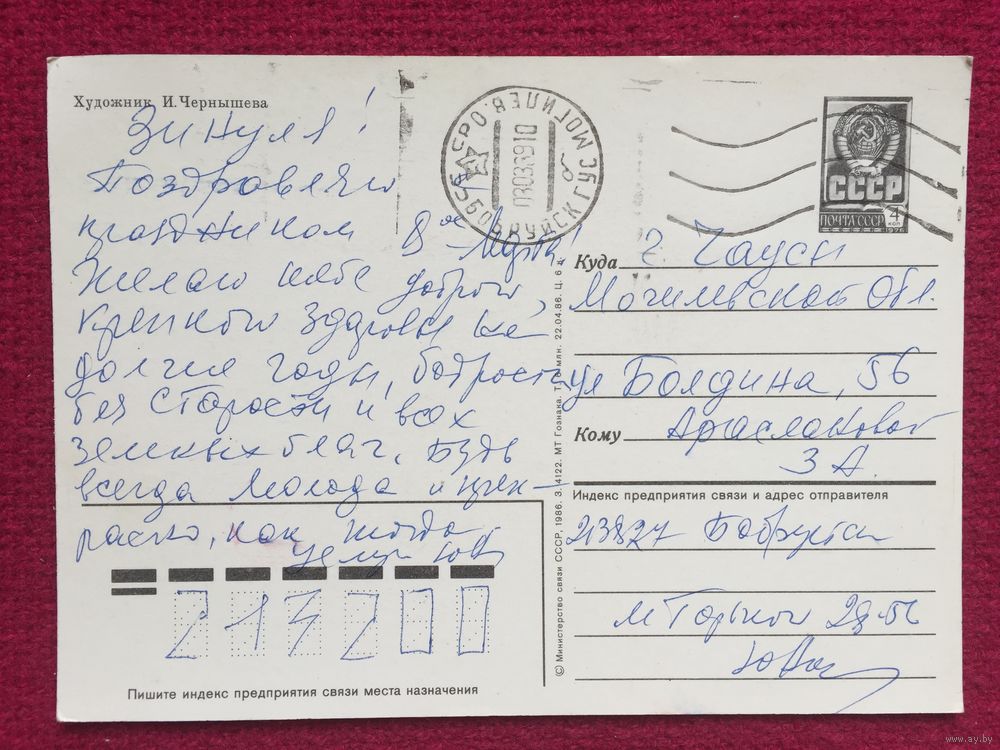 Художник И.Чернышева
Зинуля!
Поздравляю с
праздником 8ое Марта!
Желаю тебе доброго,
крепкого здоровья на
долгие годы, бодрость
без старости и всех
земных благ. Будь
всегда молода и прек-
расна, как тогда
целую
213200
Пишите индекс предприятия связи места назначения
БОБРУЙСК Г УС МОГИЛЕВ. О
030389 10
СССР
ПОЧТА СССР
4
КОП
1976
Куда г. Чаусы
Могилевской Обл.
ул Болдина, 56
Кому
З А.
Индекс предприятия связи и адрес отправителя
213827 Бобруйск
М Горького 28-56
© Министерство связи СССР, 1986. З. 4122. МТ Гознака. Т. 6 млн. 22.04.86. Ц. 6 к.
www.ay.by